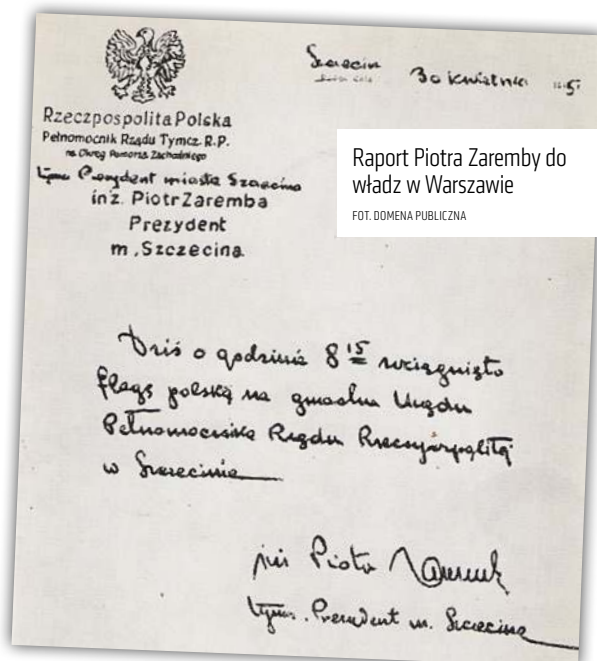 Szczecin
30 kwietnia
Rzeczpospolita Polska
Pełnomocnik Rządu Tymcz. R.P.
na Okręg Pomorza Zachodniego
Tymcz. Prezydent miasta Szczecina
inż. Piotr Zaremba
Prezydent
m. Szczecina
Raport Piotra Zaremby do
władz w Warszawie
FOT. DOMENA PUBLICZNA
Dziś o godzinie 8 15 wciągnięto
flagę polską na gmachu Urzędu
Pełnomocnika Rządu Rzeczypospolitej
w Szczecinie
inż Piotr Zaremba
tymcz. Prezydent m. Szczecina